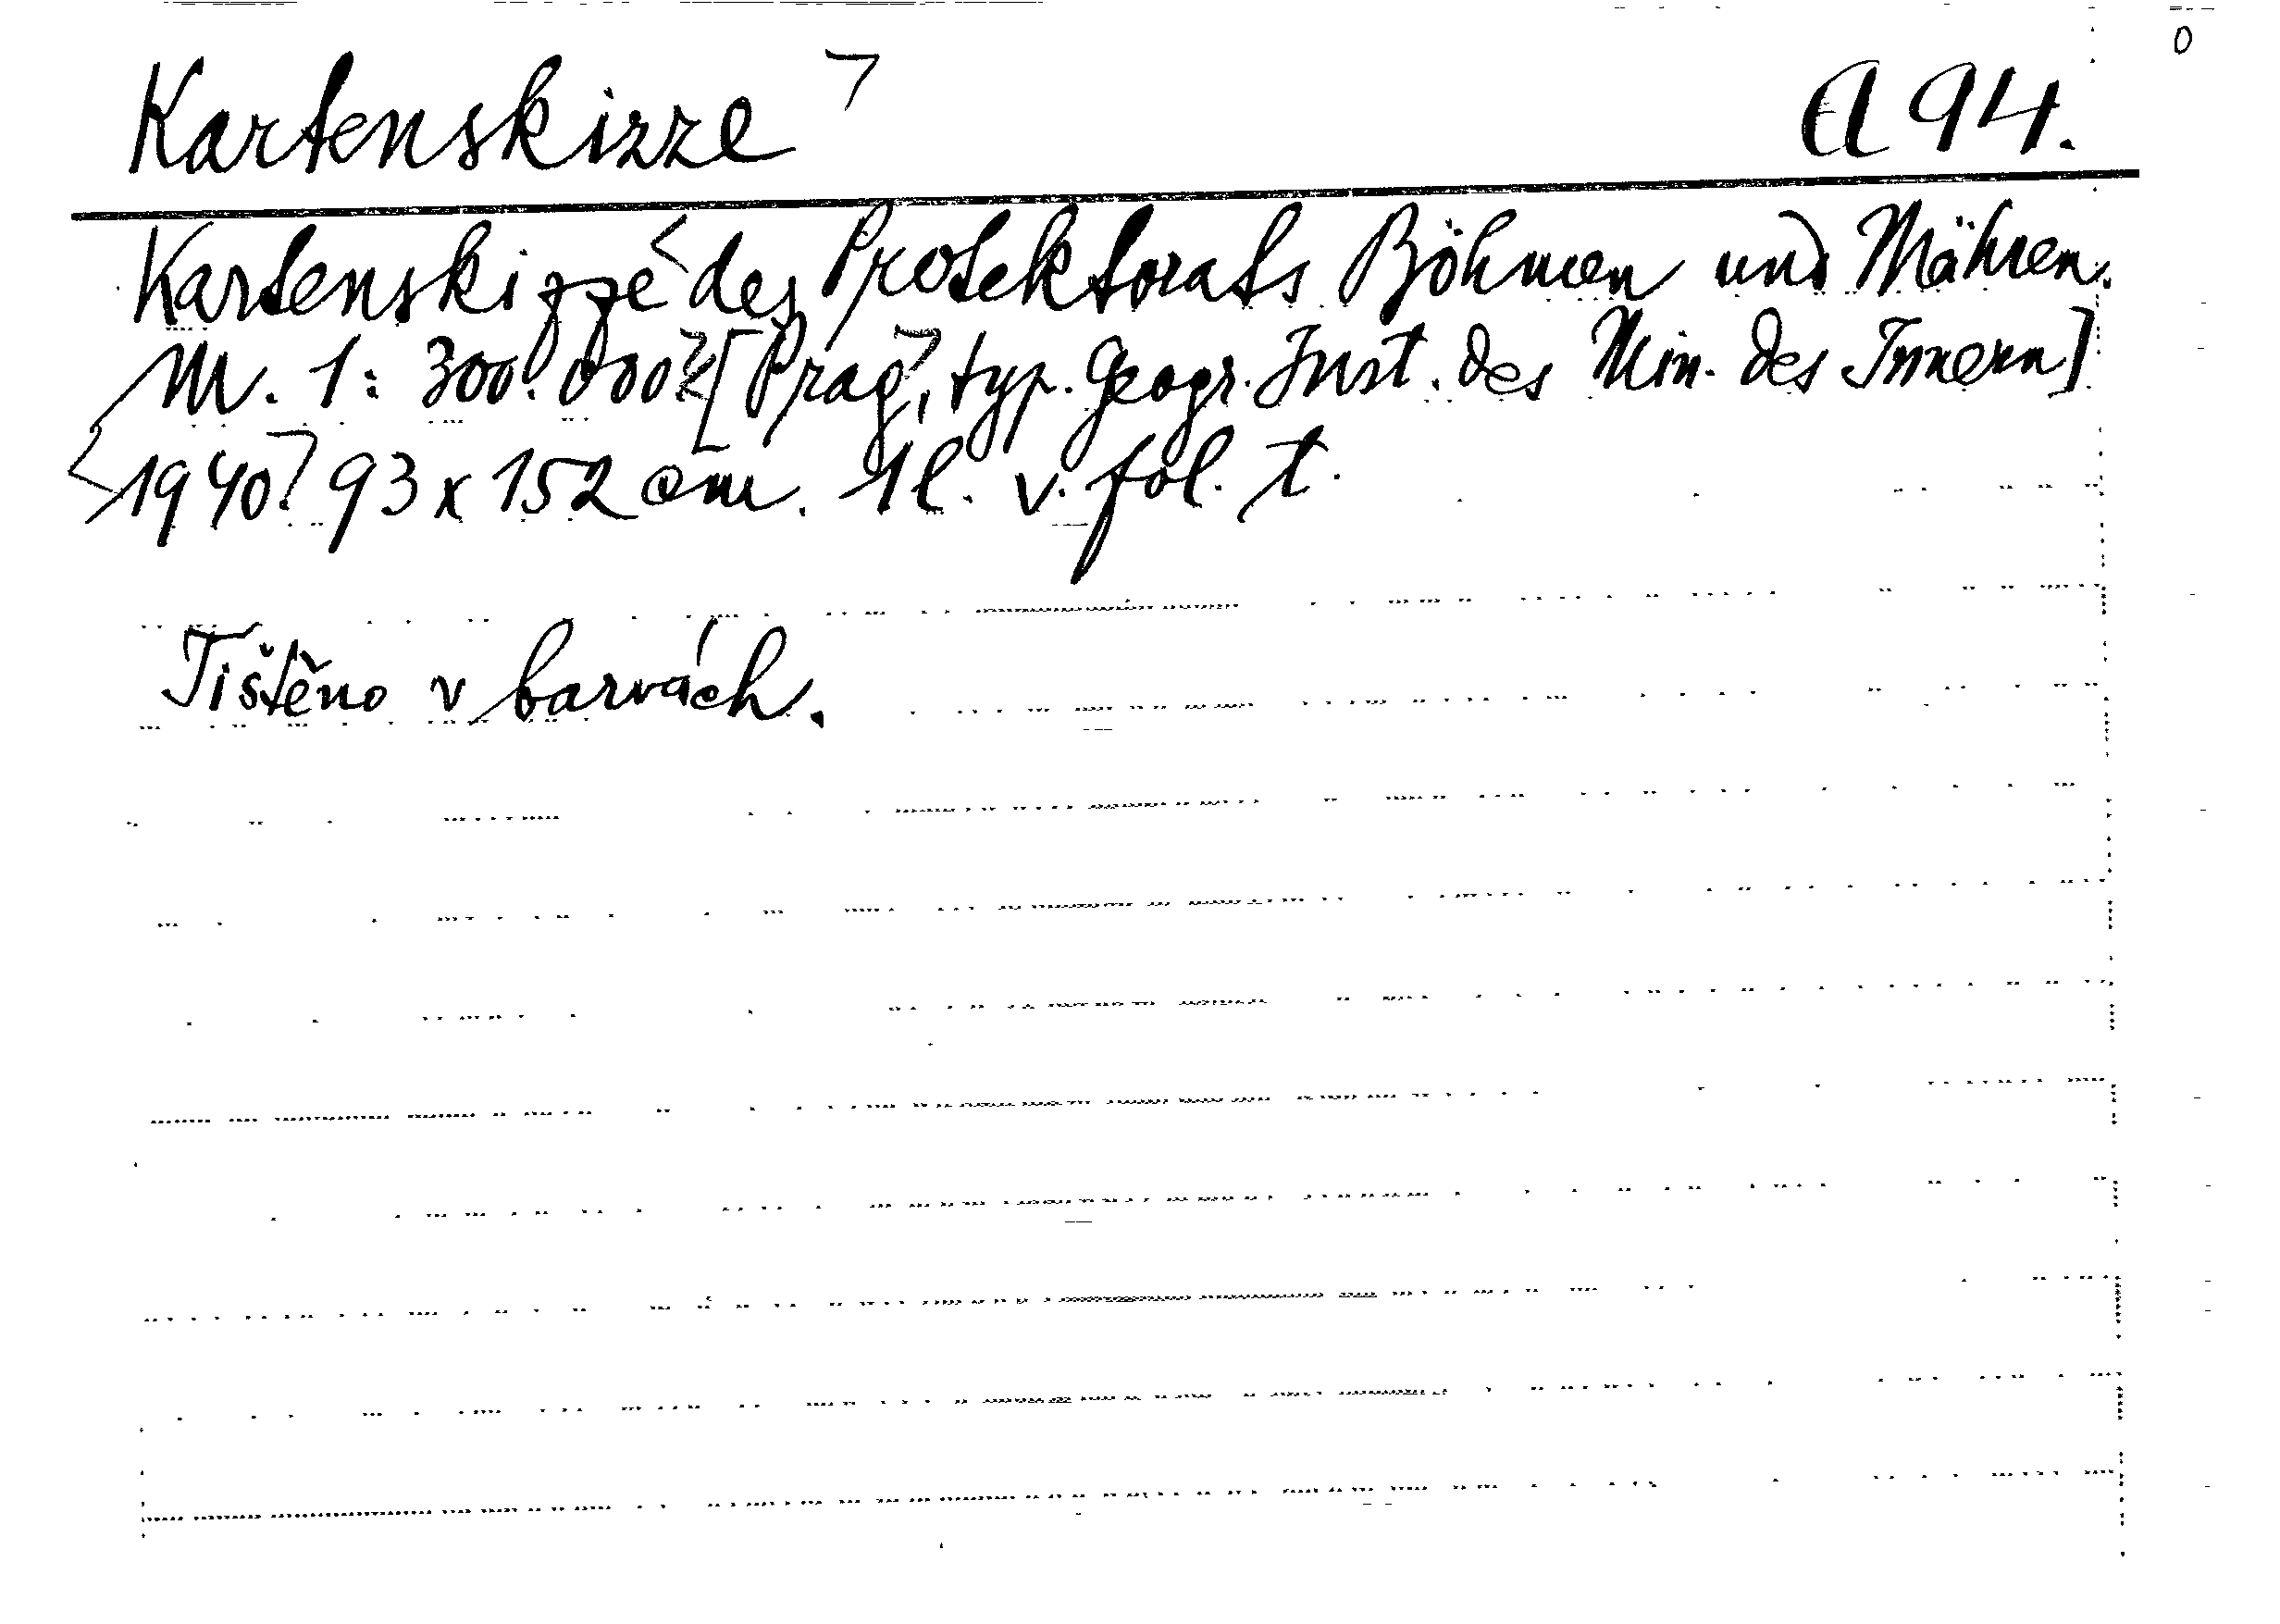 Kartenskizze A 94.
Kartenskizze des Protektorats Böhmen und Mähren.
M. 1: 300.000. [Prag, typ. Geogr. Inst. des Min. des Innern]
1940. 93 x 152 cm. 1 l. v. fol. t.
Tištěno v barvách.